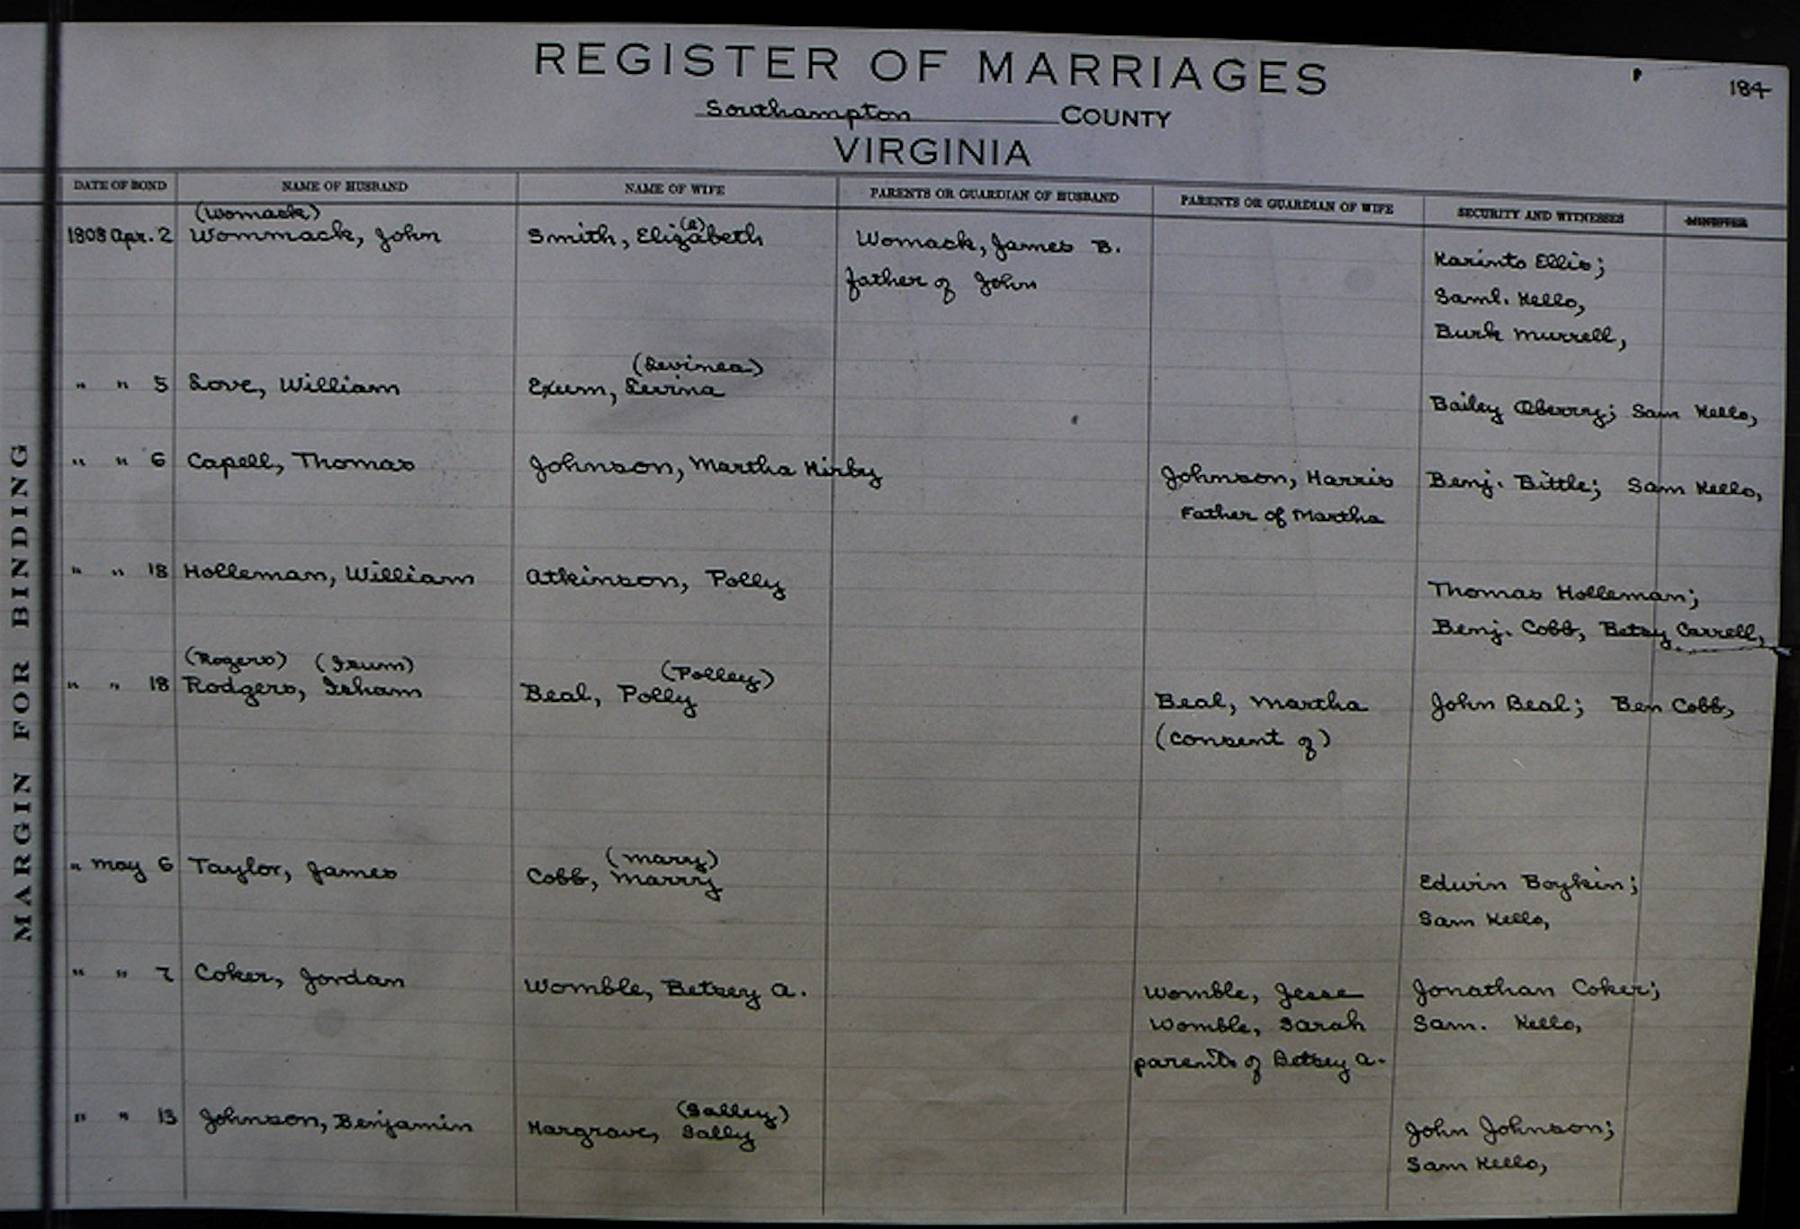 REGISTER OF MARRIAGES
184
Southampton COUNTY
VIRGINIA
MARGIN FOR BINDING
DATE OF BOND NAME OF HUSBAND NAME OF WIFE PARENTS OR GUARDIAN OF HUSBAND PARENTS OR GUARDIAN OF WIFE SECURITY AND WITNESSES MINISTER
(Womack)
1808 Apr. 2 Wommack, John Smith, Elizabeth Womack, James B.
father of John
Karinto Ellis;
Saml. Kello,
Burk Murrell,
(Levinea)
" " 5 Love, William Exum, Levina
Bailey Oberry; Sam Kello,
" " 6 Capell, Thomas Johnson, Martha Kirby Johnson, Harris Benj. Bittle; Sam Kello,
Father of Martha
" " 18 Holleman, William Atkinson, Polly Thomas Holleman;
Benj. Cobb, Betsy Carrell,
(Rogers) (Isum) (Polley)
" " 18 Rodgers, Isham Beal, Polly Beal, Martha John Beal; Ben Cobb,
(consent of)
(Mary)
" May 6 Taylor, James Cobb, Marry Edwin Boykin;
Sam Kello,
" " 7 Coker, Jordan Womble, Betsey A. Womble, Jesse Jonathan Coker;
Womble, Sarah Sam. Kello,
parents of Betsey A.
(Salley)
" " 13 Johnson, Benjamin Hargrave, Sally John Johnson;
Sam Kello,